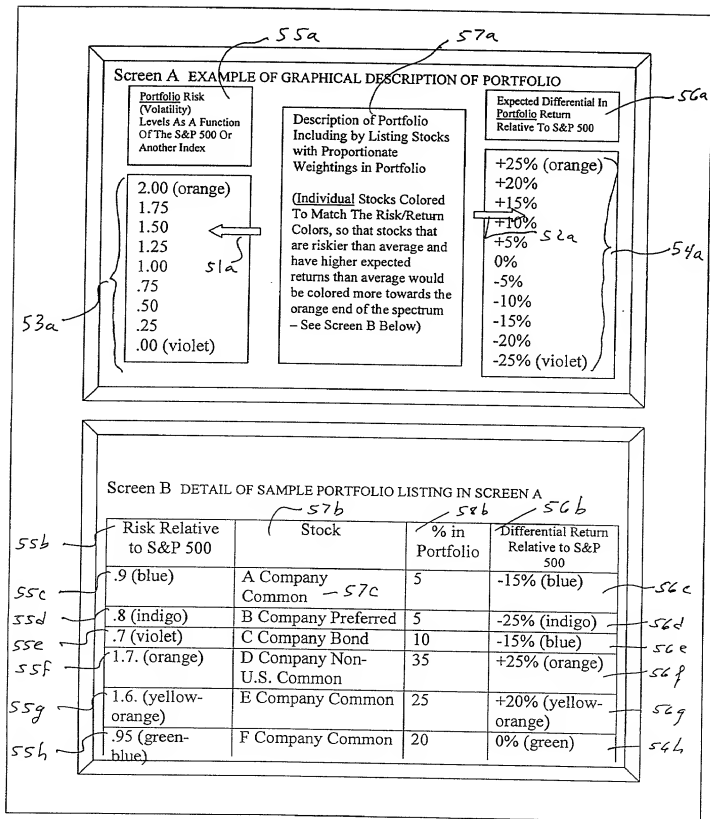 55a
57a
Screen A EXAMPLE OF GRAPHICAL DESCRIPTION OF PORTFOLIO
Portfolio Risk
(Volatility)
Levels As A Function
Of The S&P 500 Or
Another Index
Description of Portfolio
Including by Listing Stocks
with Proportionate
Weightings in Portfolio
(Individual Stocks Colored
To Match The Risk/Return
Colors, so that stocks that
are riskier than average and
have higher expected
returns than average would
be colored more towards the
orange end of the spectrum
– See Screen B Below)
Expected Differential In
Portfolio Return
Relative To S&P 500
56a
2.00 (orange)
1.75
1.50
1.25
1.00
.75
.50
.25
.00 (violet)
51a
53a
+25% (orange)
+20%
+15%
+10%
+5%
0%
-5%
-10%
-15%
-20%
-25% (violet)
52a
54a
Screen B DETAIL OF SAMPLE PORTFOLIO LISTING IN SCREEN A
57b
58b
56b
55b
Risk Relative
to S&P 500
Stock
% in
Portfolio
Differential Return
Relative to S&P
500
55c
.9 (blue)
A Company
Common
57c
5
-15% (blue)
56c
55d
.8 (indigo)
B Company Preferred
5
-25% (indigo)
56d
55e
.7 (violet)
C Company Bond
10
-15% (blue)
56e
55f
1.7. (orange)
D Company Non-
U.S. Common
35
+25% (orange)
56f
55g
1.6. (yellow-
orange)
E Company Common
25
+20% (yellow-
orange)
56g
55h
.95 (green-
blue)
F Company Common
20
0% (green)
56h